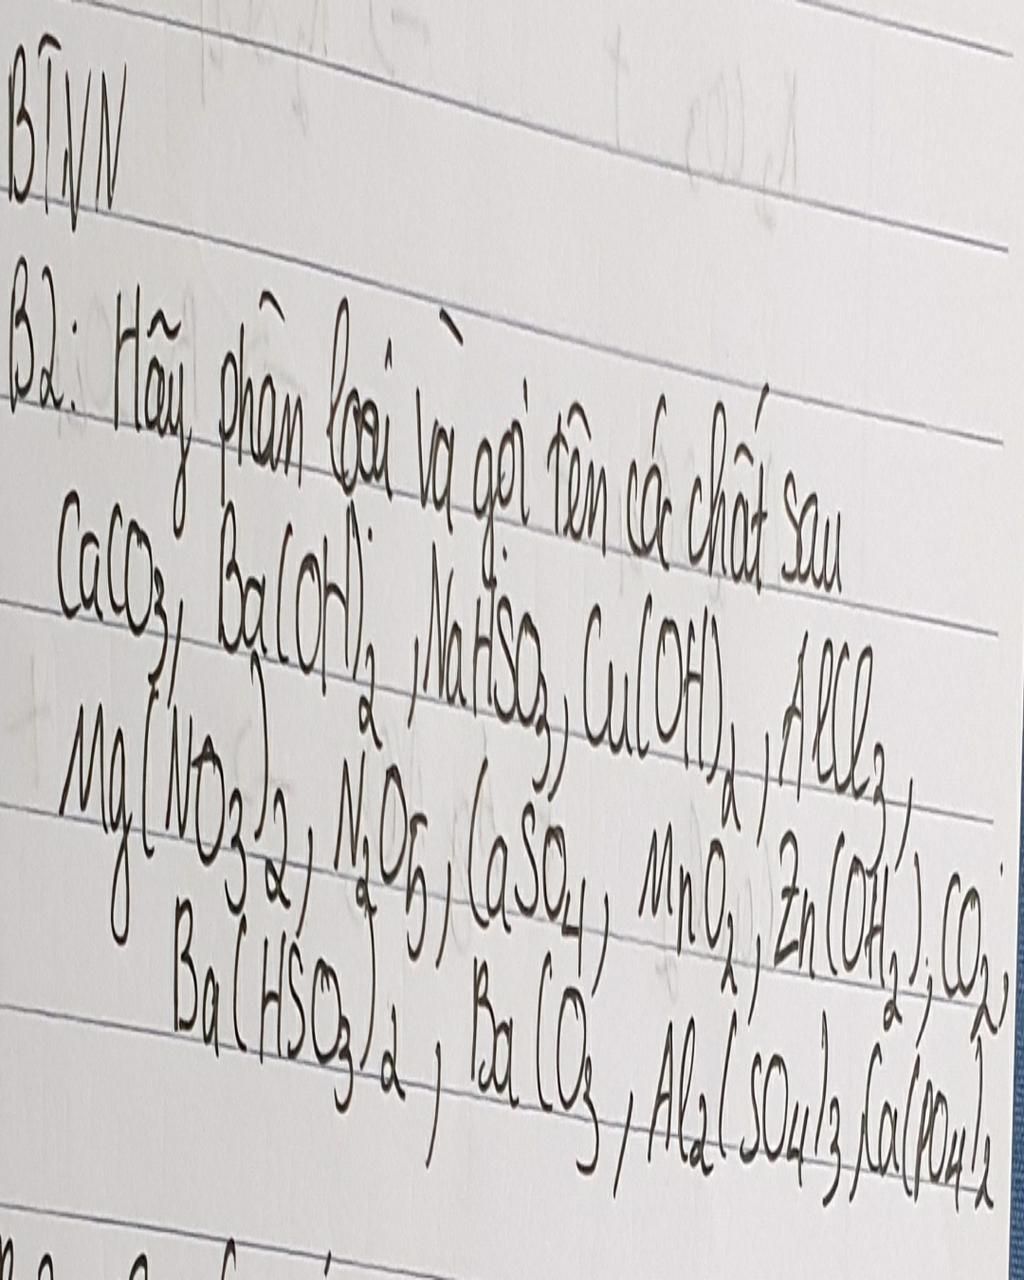 BTVN
B2: Hãy phân loại và gọi tên các chất sau
CaCO3, Ba(OH)2, NaHSO3, Cu(OH)2, AlCl3,
Mg(NO3)2, N2O5, CaSO4, MnO2, Zn(OH2), CO2,
Ba(HSO3)2, BaCO3, Al2(SO4)3, Ca(PO4)2